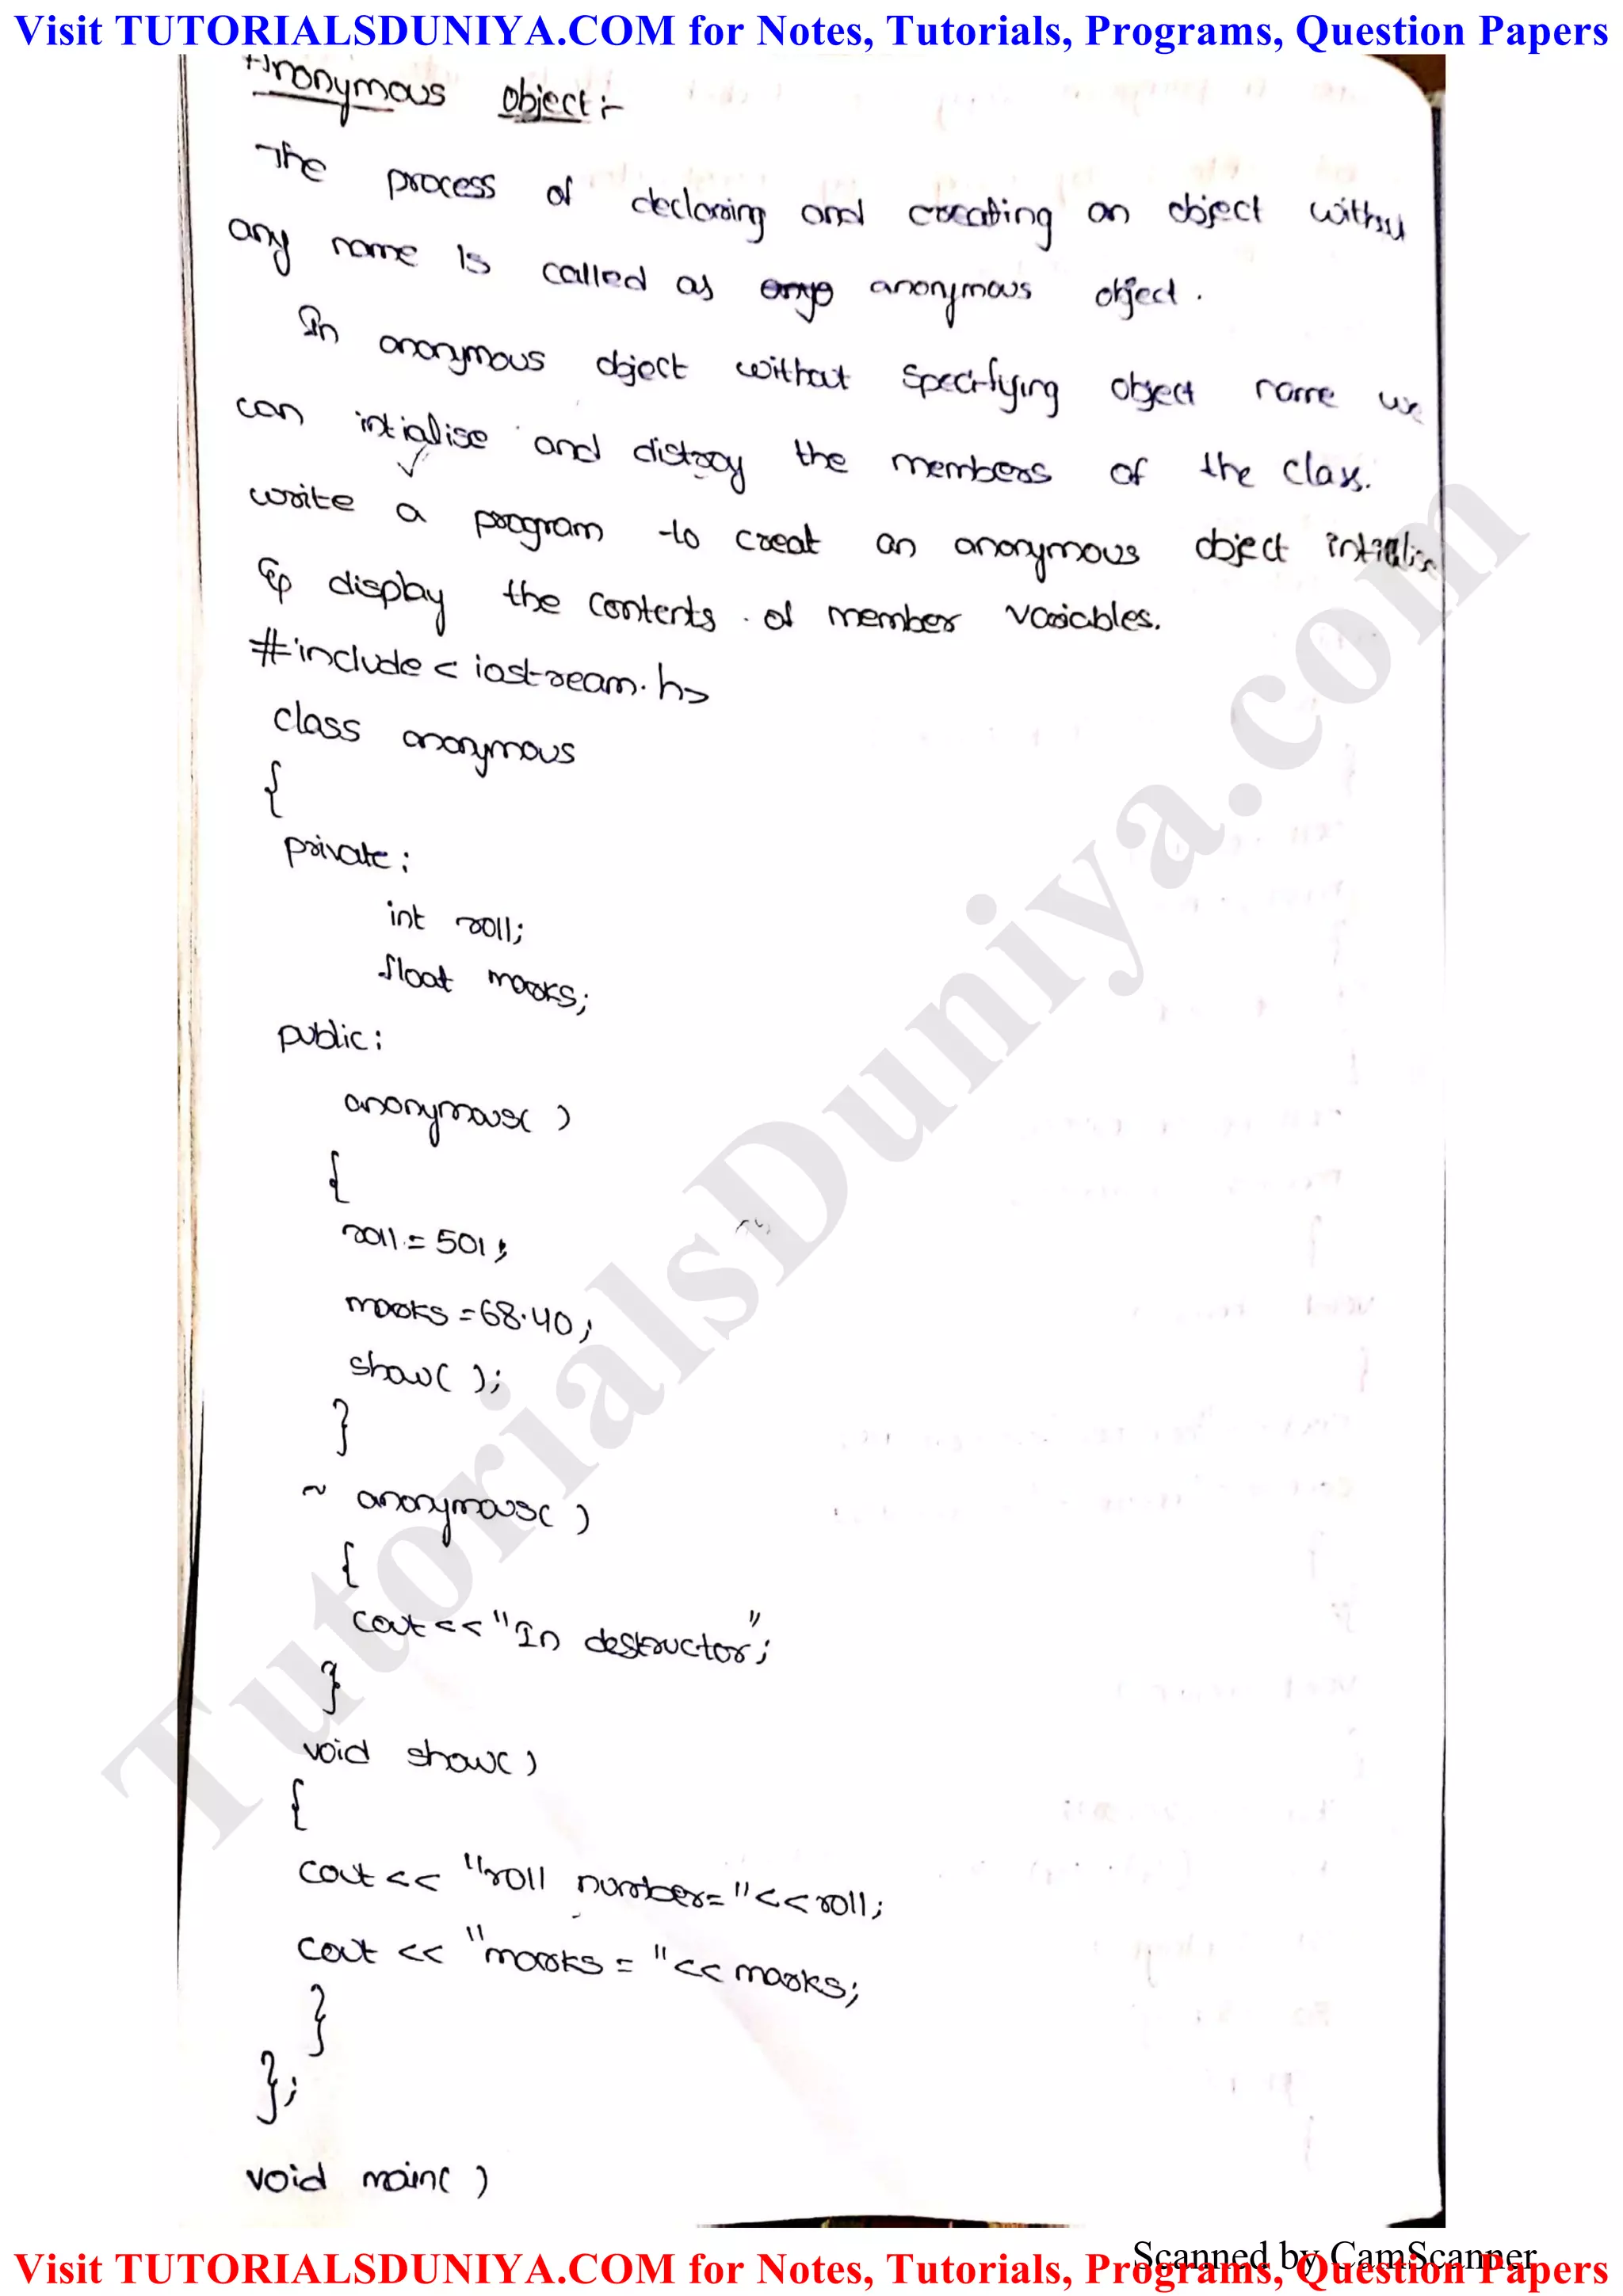 Visit TUTORIALSDUNIYA.COM for Notes, Tutorials, Programs, Question Papers
Anonymous object :-
The process of declaring and creating an object withou
any name is called as anonymous object.
In anonymous object without specifying object name we
can intialise and distroy the members of the class.
write a program to creat an anonymous object intialis
& display the contents of member variables.
#include < iostream.h>
class anonymous
{
private:
int roll;
float marks;
public:
anonymous( )
{
roll = 501;
marks = 68.40;
show( );
}
~ anonymous( )
{
cout << "In destructor";
}
void show( )
{
cout << "roll number= "<< roll;
cout << "marks = "<< marks;
}
};
void main( )
TutorialsDuniya.com
Scanned by CamScanner
Visit TUTORIALSDUNIYA.COM for Notes, Tutorials, Programs, Question Papers